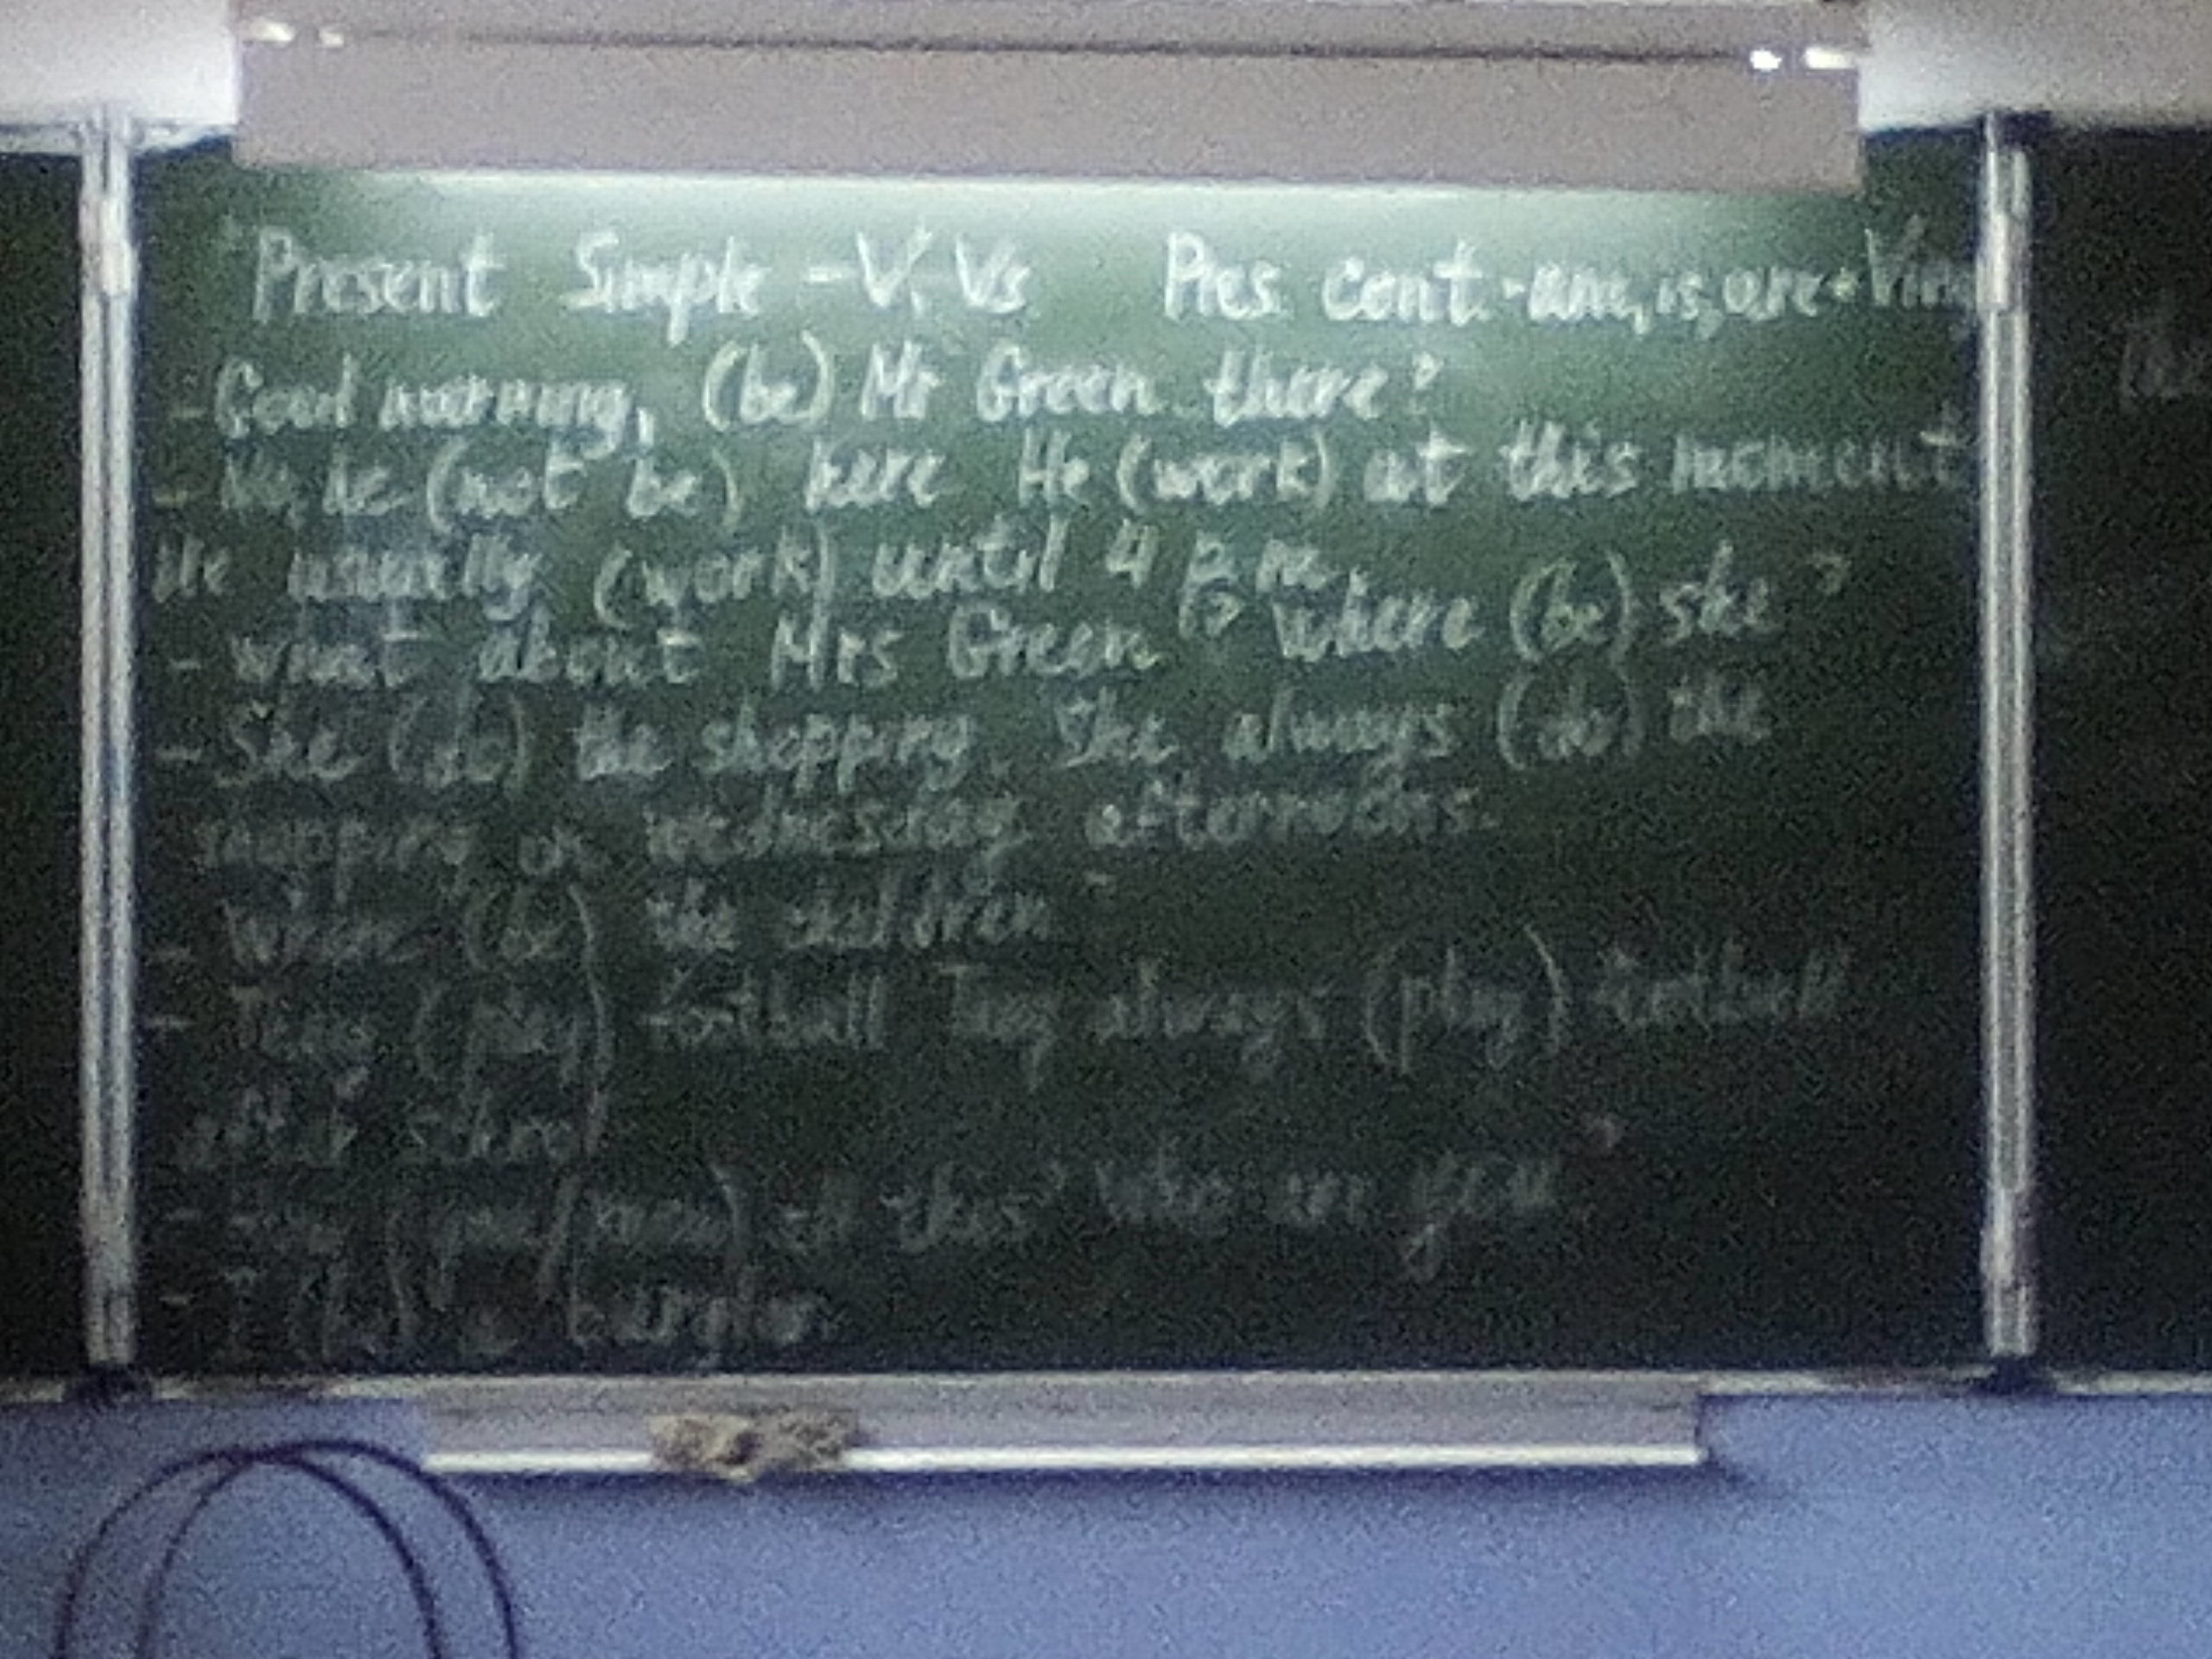 Present Simple - V, Vs Pres. cont. - am, is, are + Ving
- Good morning, (be) Mr Green there?
- No, he (not be) here He (work) at this moment
He usually (work) until 4 p.m.
- What about Mrs Green? Where (be) she?
- She (do) the shopping. She always (do) the
shopping on Wednesday afternoons.
- Where (be) the children?
- They (play) football They always (play) football
after school
- How (you/know) all this? Who are you?
- I (be) a burglar.
the